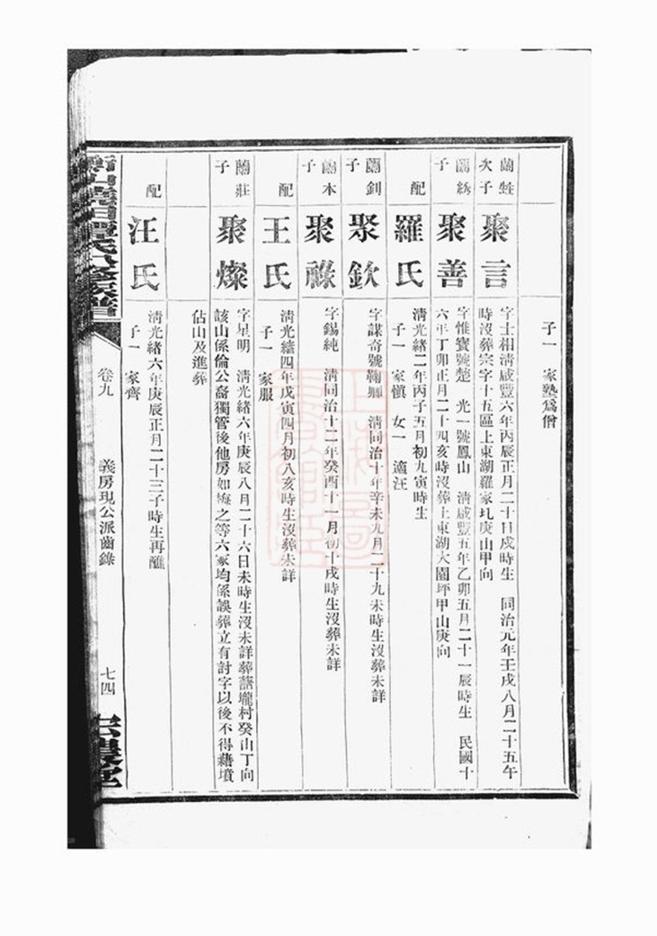 子一 家塾爲僧
次子
聚言
字士相清咸豐六年丙辰正月二十日戌時生 同治元年壬戌八月二十五午
時沒葬宗字十五區上東湖羅家圠庚山甲向
子
聚善
字惟寶號楚 光一號鳳山 清咸豐五年乙卯五月二十一辰時生 民國十
六年丁卯正月二十四亥時沒葬上東湖大園坪甲山庚向
配
羅氏
清光緒二年丙子五月初九寅時生
子一 家愼 女一 適汪
蘭釗
子
聚欽
字謀奇號鞠卿 清同治十年辛未九月二十九未時生沒葬未詳
蘭本
子
聚祿
字錫純 清同治十二年癸酉十一月初十戌時生沒葬未詳
配
王氏
清光緒四年戊寅四月初八亥時生沒葬未詳
子一 家服
蘭莊
子
聚燦
字星明 清光緒六年庚辰八月二十六日未時生沒未詳葬諸壠村癸山丁向
該山係倫公裔獨管後他房如梅之等六冢均係誤葬立有討字以後不得藉墳
佔山及進葬
配
汪氏
清光緒六年庚辰正月二十三子時生再醮
子一 家齊
卷九
義房現公派齒錄
七四